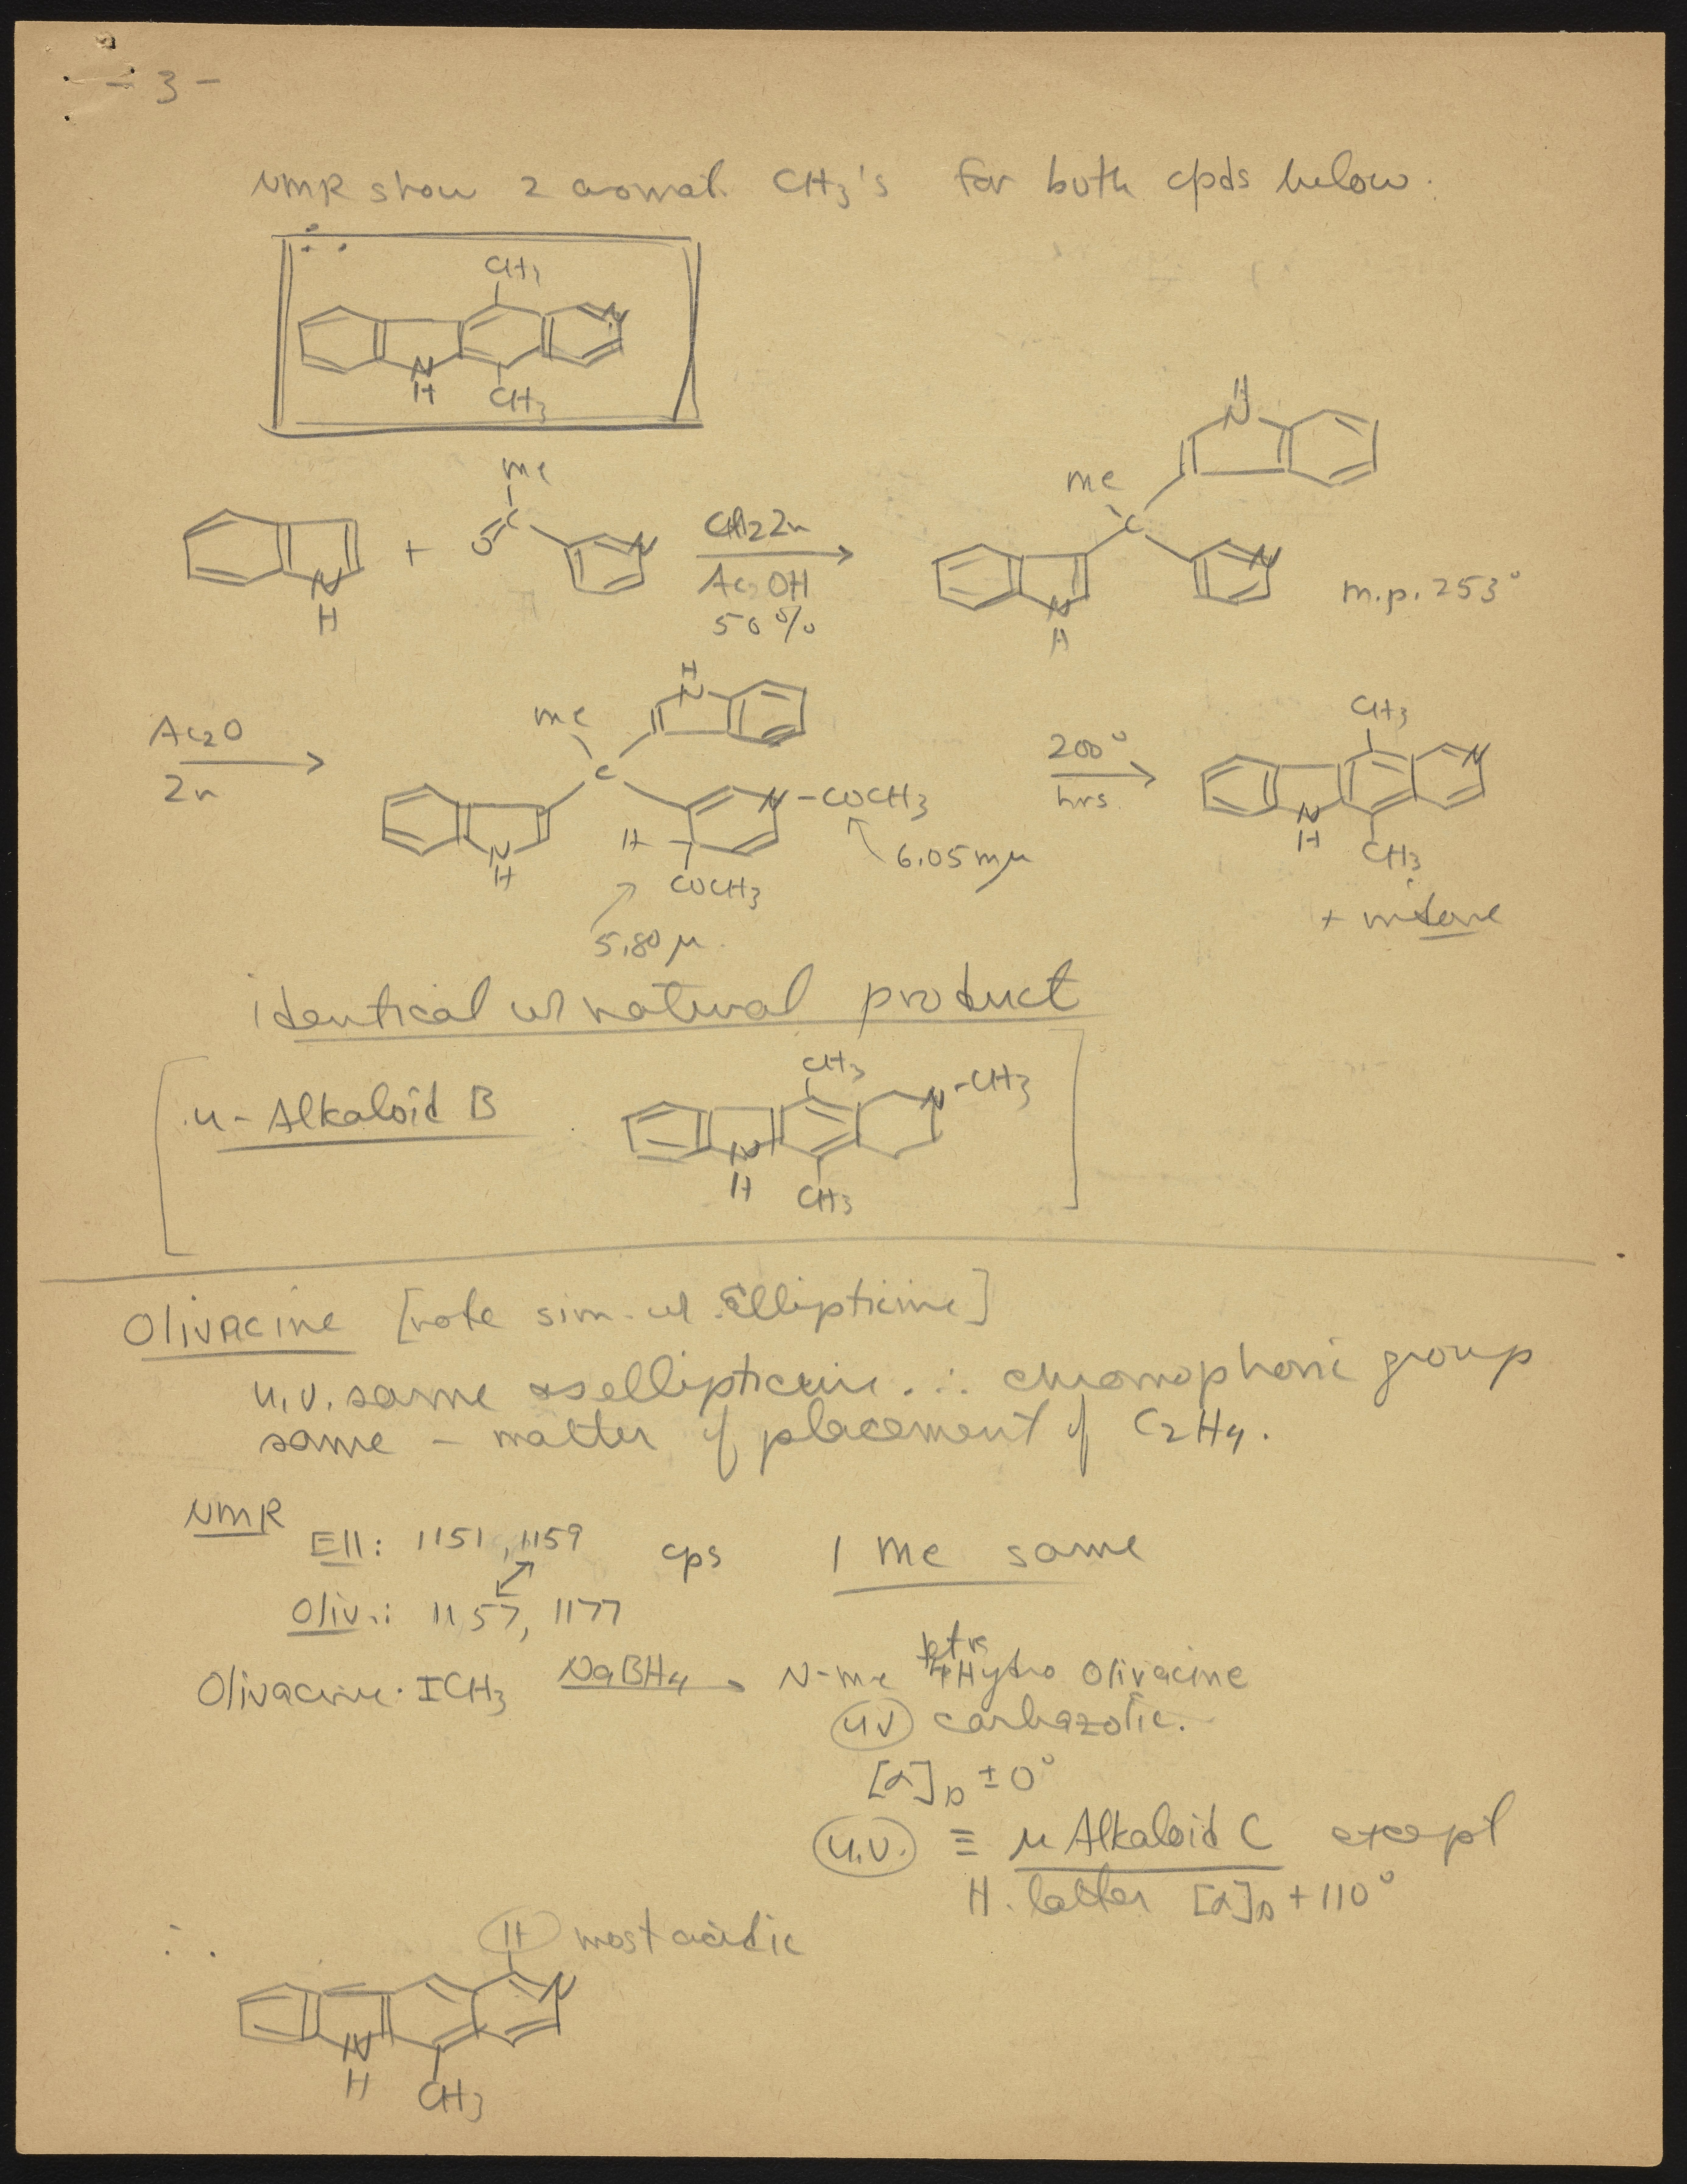 - 3 -
NMR show 2 aromat. CH3's for both cpds below.
∴
CH3
N
N
H
CH3
Me
O
C
N
+
N
H
Ac OH
50%
H
N
Me
C
N
N
H
m.p. 253°
Ac2O
Zn
H
N
Me
C
N-COCH3
N
H
H
COCH3
6.05 mμ
5.80 μ
200°
hrs.
CH3
N
N
H
CH3
+
identical w/ natural product
[u-Alkaloid B
CH3
N-CH3
N
H
CH3]
Olivacine [note sim. w/ Ellipticine]
u.v. same as ellipticine. ∴ chromophoric group
same - matter of placement of C2H4.
NMR
Ell: 1151, 1159 cps 1 Me same
Oliv.: 1157, 1177
Olivacine·ICH3 NaBH4 → N-Me tetra Hydro Olivacine
UV carbazolic.
[α]D ± 0°
U.V. ≡ μ Alkaloid C except
latter [α]D + 110°
∴
H most acidic
N
N
H
CH3